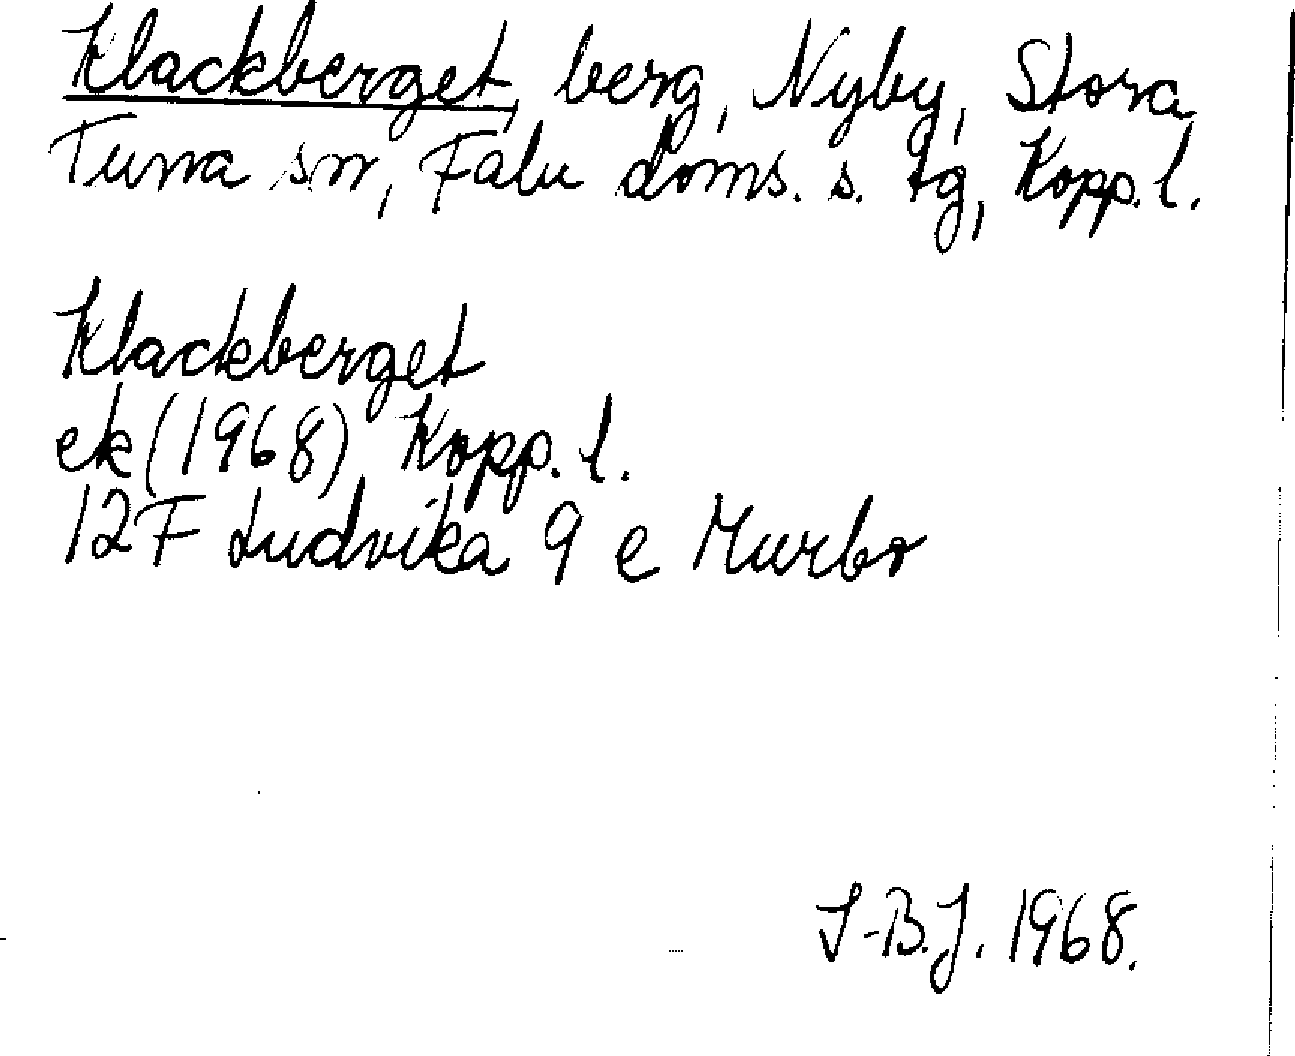 Klackberget, berg, Nyby, Stora
Tuna sn, Falu doms. s. tg, Kopp. l.
Klackberget
ek (1968) Kopp. l.
12F Ludvika 9 e Murbo
I-B.J. 1968.